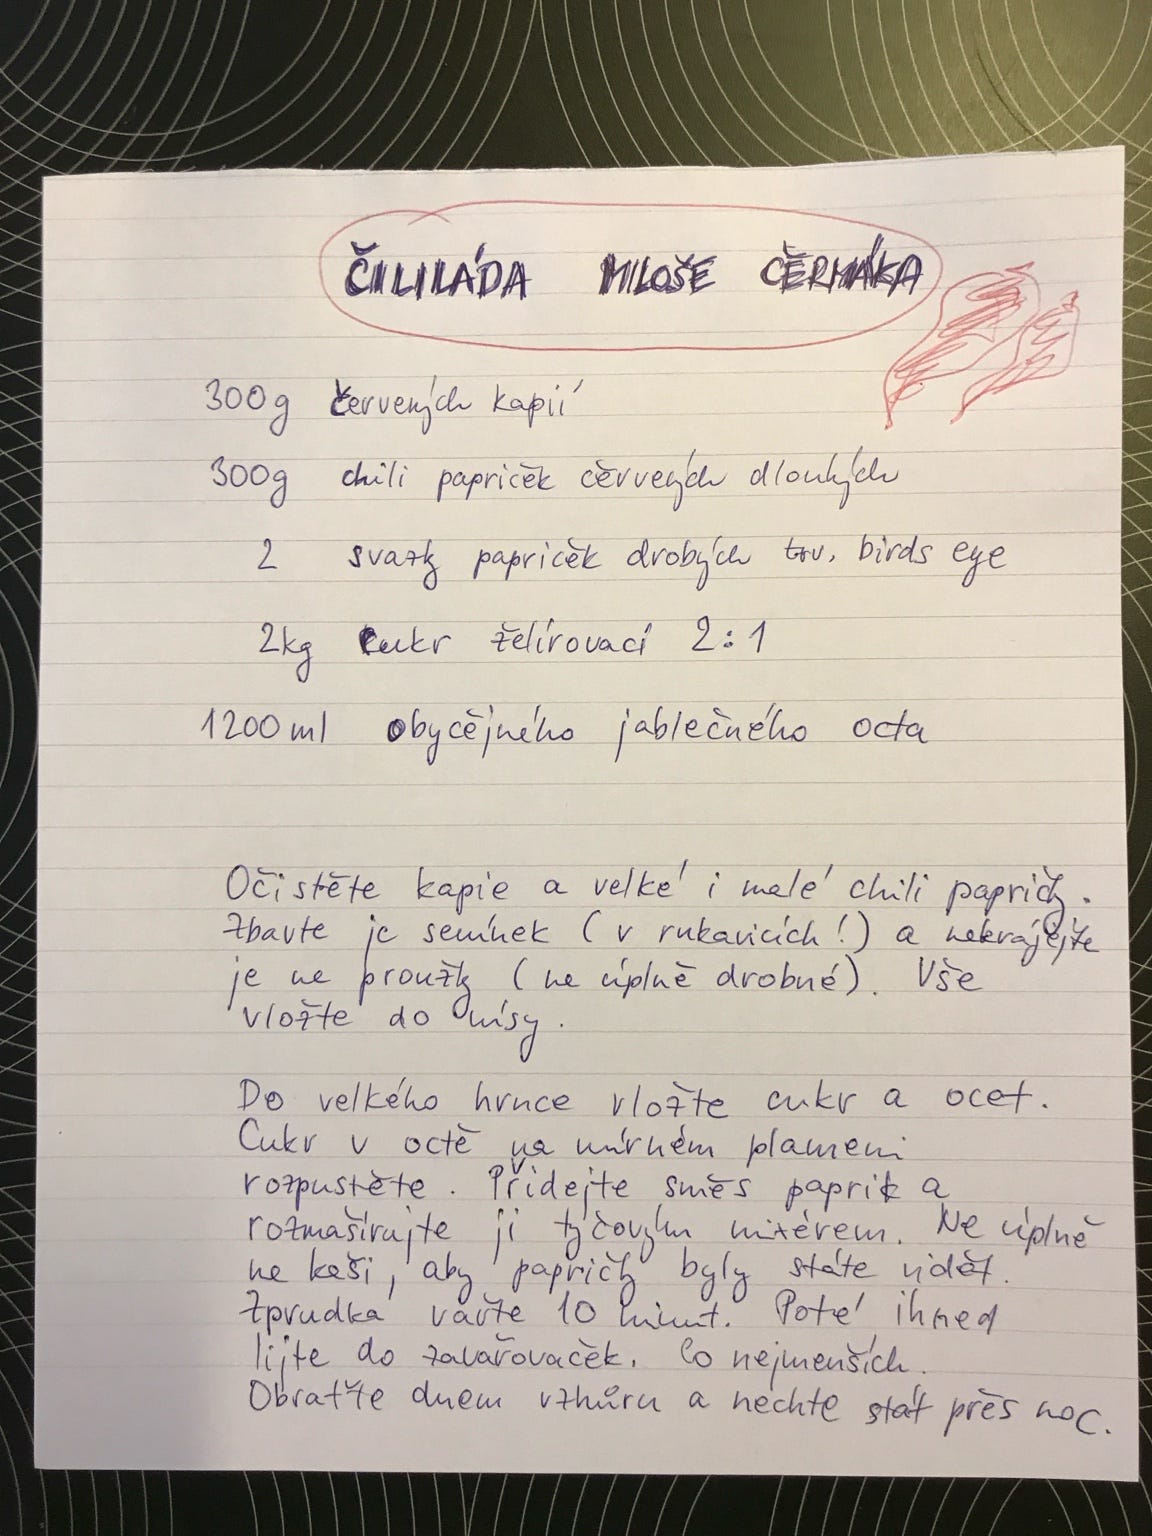 ČILILÁDA MILOŠE ČERMÁKA
300g červených kapií
300g chili papriček červených dlouhých
2 svazky papriček drobných tzv. birds eye
2kg cukr želírovací 2:1
1200ml obyčejného jablečného octa
Očistěte kapie a velké i malé chili papričky.
Zbavte je semínek (v rukavicích!) a nakrájejte
je na proužky (ne úplně drobné). Vše
vložte do mísy.
Do velkého hrnce vložte cukr a ocet.
Cukr v octě na mírném plameni
rozpustěte. Přidejte směs paprik a
rozmašírujte ji tyčovým mixérem. Ne úplně
na kaši, aby papričky byly stále vidět.
Zprudka vařte 10 minut. Poté ihned
lijte do zavařovaček. Co nejmenších.
Obraťte dnem vzhůru a nechte stát přes noc.